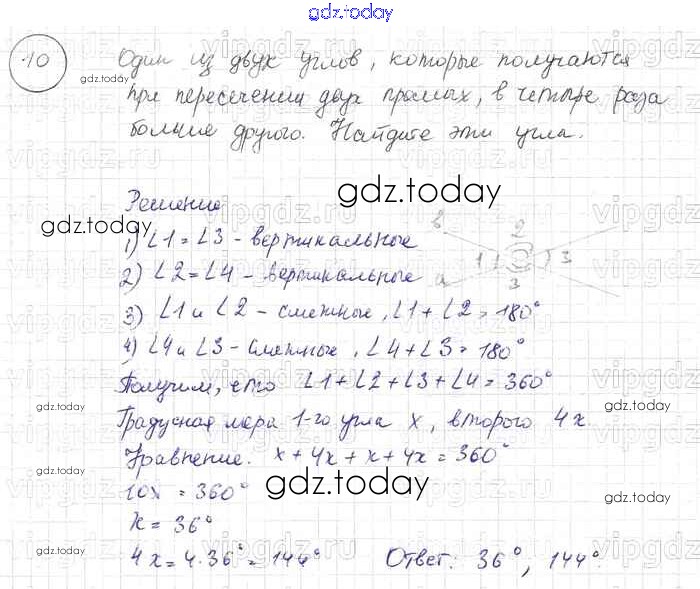 gdz.today
10
Один из двух углов, которые получаются
gdz.today
при пересечении двух прямых, в четыре раза
больше другого. Найдите эти угла.
Решение
gdz.today
gdz.today
1) ∠1 = ∠3 - вертикальные
в 2
1 3
2) ∠2 = ∠4 - вертикальные
а 3
3) ∠1 и ∠2 - смежные, ∠1 + ∠2 = 180°
4) ∠4 и ∠3 - смежные, ∠4 + ∠3 = 180°
Получим, что ∠1 + ∠2 + ∠3 + ∠4 = 360°
gdz.today
gdz.today
Градусная мера 1-го угла x, второго 4x.
Уравнение. x + 4x + x + 4x = 360°
10x = 360°
gdz.today
gdz.today
x = 36°
4x = 4·36° = 144° Ответ: 36°, 144°.
gdz.today
gdz.today